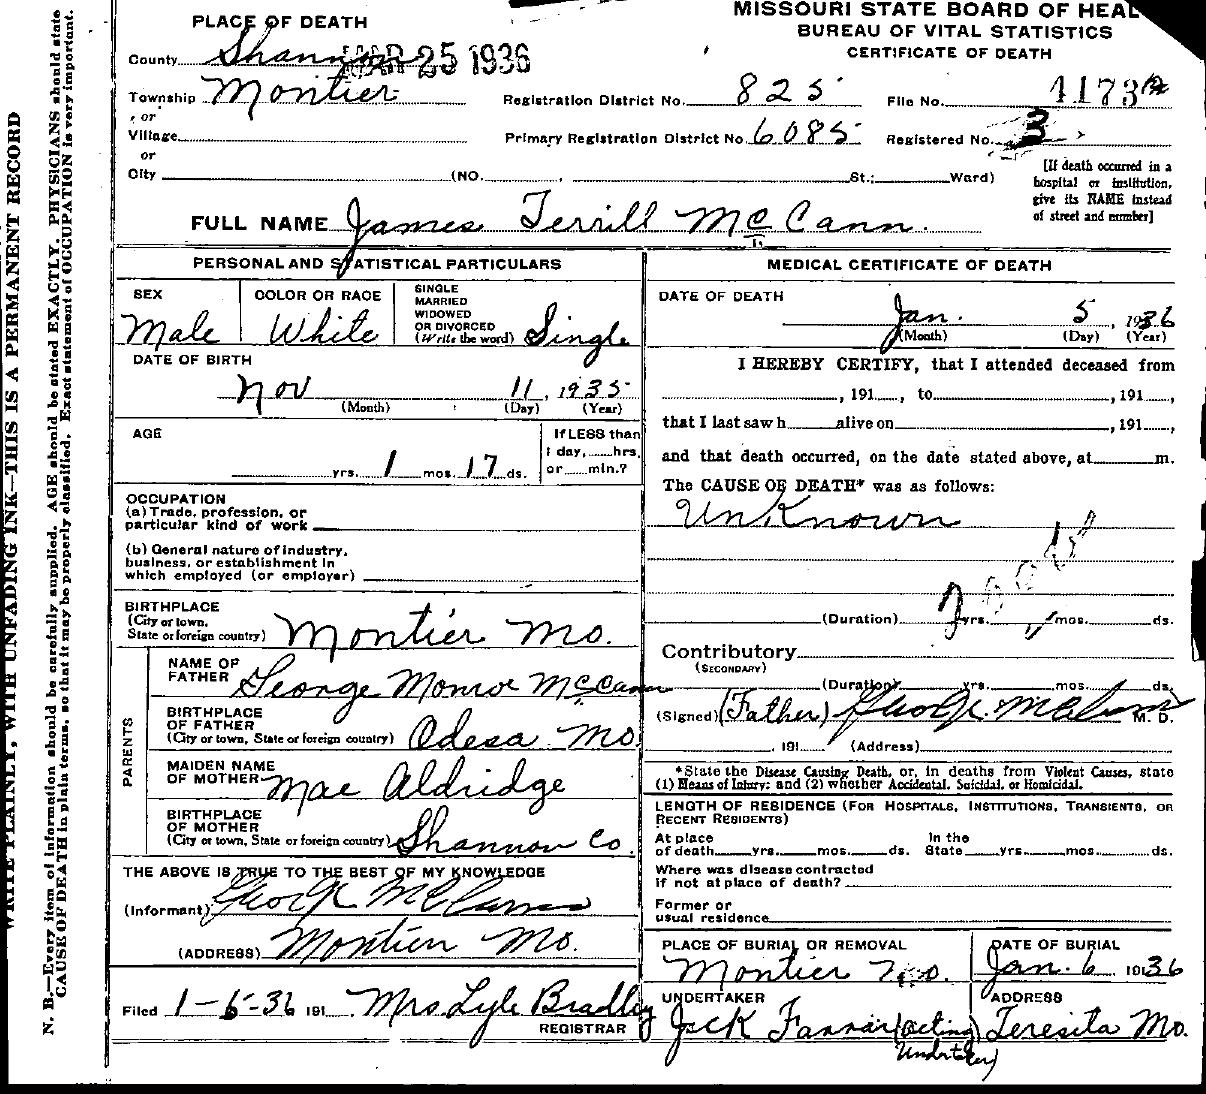 MISSOURI STATE BOARD OF HEAL
BUREAU OF VITAL STATISTICS
CERTIFICATE OF DEATH
PLACE OF DEATH
County Shannon
MAR 25 1936
Township Montier
or
Village
or
City (NO. , St.; Ward)
Registration District No. 825
File No. 1173
Primary Registration District No. 6085
Registered No. 3
[If death occurred in a
hospital or institution,
give its NAME instead
of street and number]
FULL NAME James Terrill McCann.
PERSONAL AND STATISTICAL PARTICULARS
SEX
Male
COLOR OR RACE
White
SINGLE
MARRIED
WIDOWED
OR DIVORCED
(Write the word) Single
DATE OF BIRTH
Nov 11, 1935
(Month) (Day) (Year)
AGE
yrs. 1 mos. 17 ds.
If LESS than
1 day, hrs.
or min.?
OCCUPATION
(a) Trade, profession, or
particular kind of work
(b) General nature of industry,
business, or establishment in
which employed (or employer)
BIRTHPLACE
(City or town,
State or foreign country) Montier Mo.
PARENTS
NAME OF
FATHER George Monroe McCann
BIRTHPLACE
OF FATHER
(City or town, State or foreign country) Odesa Mo.
MAIDEN NAME
OF MOTHER Mae Aldridge
BIRTHPLACE
OF MOTHER
(City or town, State or foreign country) Shannon Co.
THE ABOVE IS TRUE TO THE BEST OF MY KNOWLEDGE
(Informant) George McCann
(ADDRESS) Montier Mo.
Filed 1-6-36 191 Mrs Lyle Bradley
REGISTRAR
MEDICAL CERTIFICATE OF DEATH
DATE OF DEATH
Jan. 5, 1936
(Month) (Day) (Year)
I HEREBY CERTIFY, that I attended deceased from
, 191 , to , 191 ,
that I last saw h alive on , 191 ,
and that death occurred, on the date stated above, at m.
The CAUSE OF DEATH* was as follows:
Unknown
(Duration) yrs. mos. ds.
Contributory
(SECONDARY)
(Duration) yrs. mos. ds.
(Signed) (Father) George McCann M. D.
, 191 (Address)
*State the Disease Causing Death, or, in deaths from Violent Causes, state
(1) Means of Injury; and (2) whether Accidental, Suicidal, or Homicidal.
LENGTH OF RESIDENCE (FOR HOSPITALS, INSTITUTIONS, TRANSIENTS, OR
RECENT RESIDENTS)
At place In the
of death yrs. mos. ds. State yrs. mos. ds.
Where was disease contracted
if not at place of death?
Former or
usual residence
PLACE OF BURIAL OR REMOVAL
Montier Mo.
DATE OF BURIAL
Jan. 6 1936
UNDERTAKER
Jack Farrar (Acting
Undertaker)
ADDRESS
Teresita Mo.
WRITE PLAINLY, WITH UNFADING INK—THIS IS A PERMANENT RECORD
N. B.—Every item of information should be carefully supplied. AGE should be stated EXACTLY. PHYSICIANS should state
CAUSE OF DEATH in plain terms, so that it may be properly classified. Exact statement of OCCUPATION is very important.